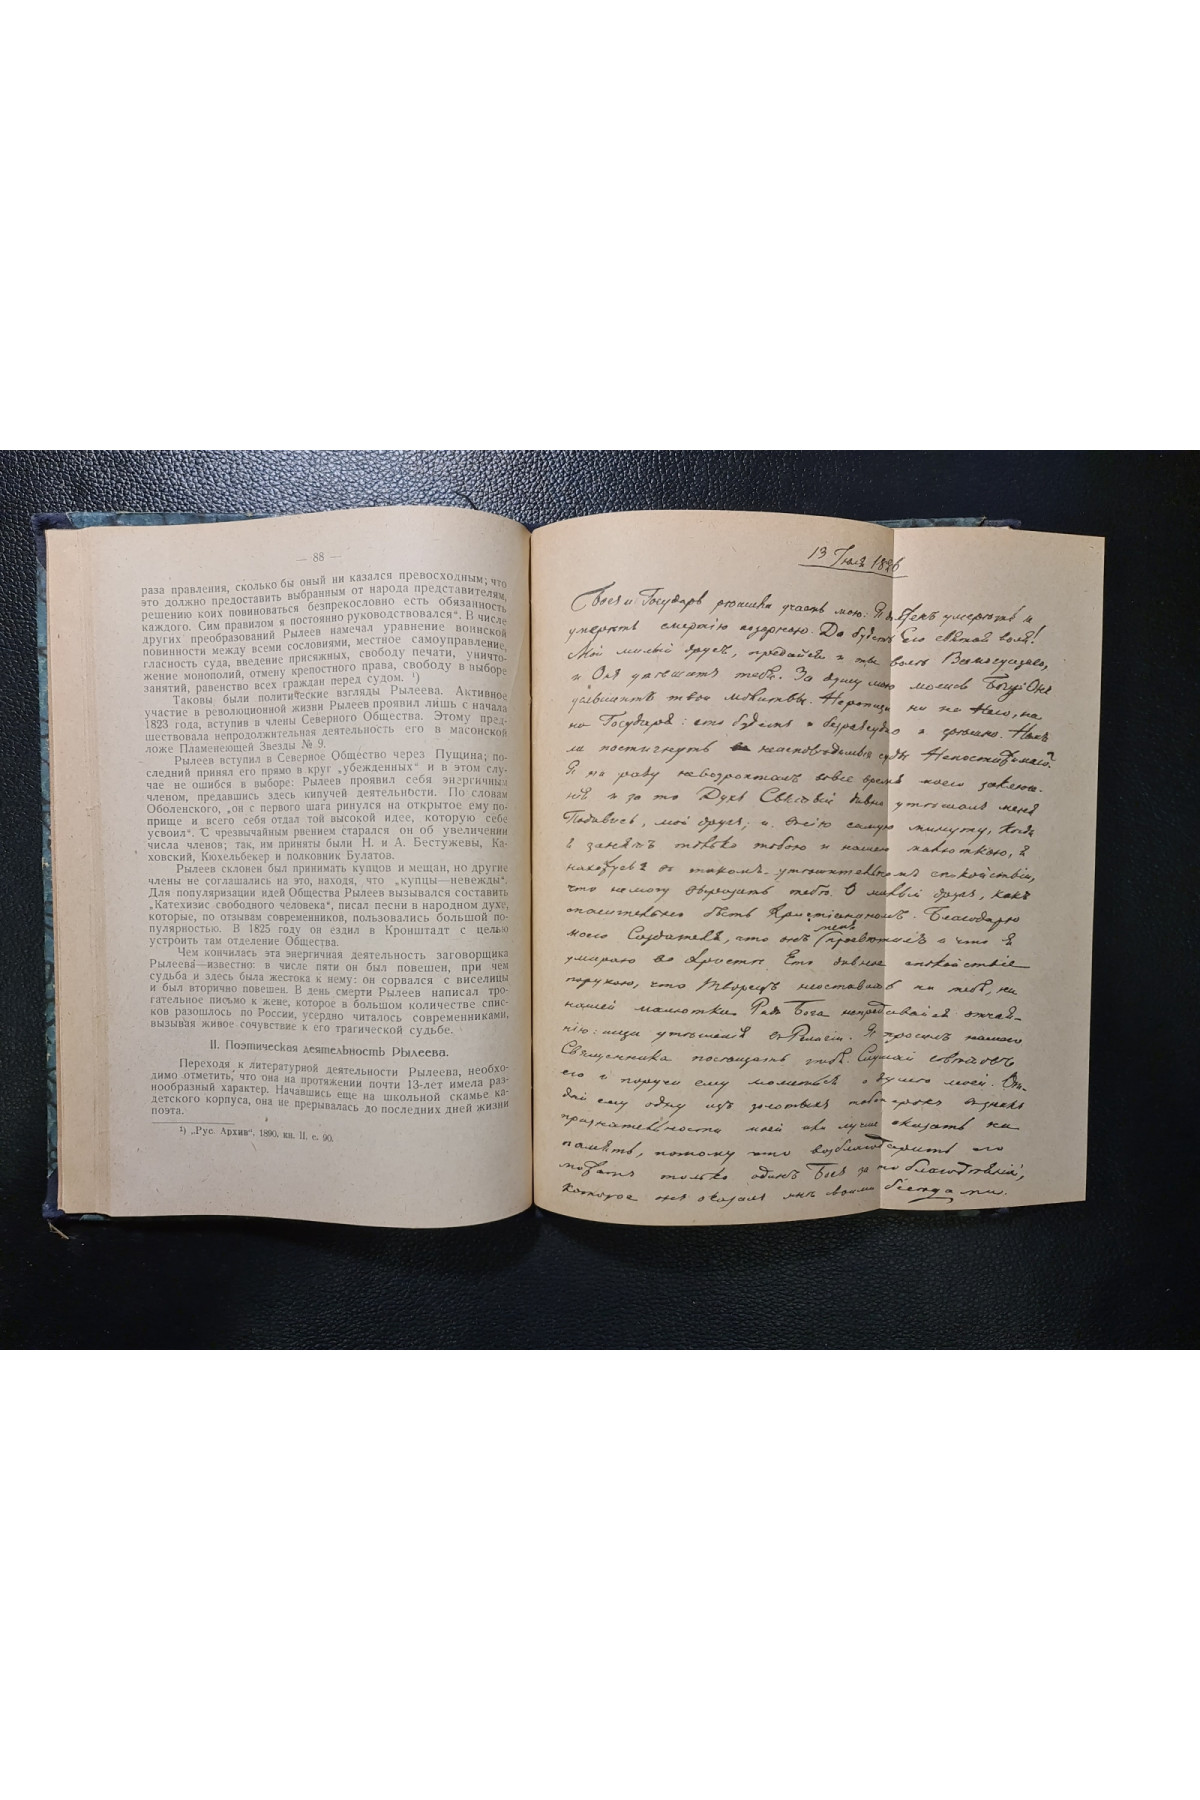 — 88 —
раза правления, сколько бы оный ни казался превосходным; что
это должно предоставить выбранным от народа представителям,
решению коих повиноваться безпрекословно есть обязанность
каждого. Сим правилом я постоянно руководствовался“. В числе
других преобразований Рылеев намечал уравнение воинской
повинности между всеми сословиями, местное самоуправление,
гласность суда, введение присяжных, свободу печати, уничто-
жение монополий, отмену крепостного права, свободу в выборе
занятий, равенство всех граждан перед судом. ¹)
Таковы были политические взгляды Рылеева. Активное
участие в революционной жизни Рылеев проявил лишь с начала
1823 года, вступив в члены Северного Общества. Этому пред-
шествовала непродолжительная деятельность его в масонской
ложе Пламенеющей Звезды № 9.
Рылеев вступил в Северное Общество через Пущина; по-
следний принял его прямо в круг „убежденных“ и в этом слу-
чае не ошибся в выборе: Рылеев проявил себя энергичным
членом, предавшись здесь кипучей деятельности. По словам
Оболенского, „он с первого шага ринулся на открытое ему по-
прище и всего себя отдал той высокой идее, которую себе
усвоил“. С чрезвычайным рвением старался он об увеличении
числа членов; так, им приняты были Н. и А. Бестужевы, Ка-
ховский, Кюхельбекер и полковник Булатов.
Рылеев склонен был принимать купцов и мещан, но другие
члены не соглашались на это, находя, что „купцы—невежды“.
Для популяризации идей Общества Рылеев вызывался составить
„Катехизис свободного человека“, писал песни в народном духе,
которые, по отзывам современников, пользовались большой по-
пулярностью. В 1825 году он ездил в Кронштадт с целью
устроить там отделение Общества.
Чем кончилась эта энергичная деятельность заговорщика
Рылеева—известно: в числе пяти он был повешен, при чем
судьба и здесь была жестока к нему: он сорвался с виселицы
и был вторично повешен. В день смерти Рылеев написал тро-
гательное письмо к жене, которое в большом количестве спис-
ков разошлось по России, усердно читалось современниками,
вызывая живое сочувствие к его трагической судьбе.
II. Поэтическая деятельность Рылеева.
Переходя к литературной деятельности Рылеева, необхо-
димо отметить, что она на протяжении почти 13-лет имела раз-
нообразный характер. Начавшись еще на школьной скамье ка-
детского корпуса, она не прерывалась до последних дней жизни
поэта.
¹) „Рус. Архив“, 1890. кн. II. с. 90.
13 Июля 1826
Богъ и Государь рѣшили участь мою: Я долженъ умереть и
умереть смертію позорною. Да будетъ Его святая воля!
Мой милый другъ, предайся и ты волѣ Всемогущаго,
и Онъ утѣшитъ тебя. За душу мою молись Богу: Онъ
услышитъ твои молитвы. Не ропщи ни на Него, ни
на Государя: это будетъ и безразсудно и грѣшно. Намъ
ли постигнуть неисповѣдимые суды Непостижимаго?
Я ни разу не возропталъ во все время моего заключе-
нія и за то Духъ Святый дивно утѣшалъ меня
Подивись, мой другъ; и въ сію самую минуту, когда
я занятъ только тобою и нашею малюткою, я
нахожусь въ такомъ утѣшительномъ спокойствіи,
что не могу выразить тебѣ. О милый другъ, какъ
спасительно быть христіаниномъ. Благодарю
моего Создателя, что онъ меня просвѣтилъ и что я
умираю во Христѣ. Его дивное спокойствіе
порукою, что Творецъ не оставитъ ни тебя, ни
нашей малютки. Ради Бога не предавайся отчая-
нію: ищи утѣшенія въ Религіи. Я просилъ нашего
Священника посѣщать тебя. Слушай совѣтовъ
его и поручи ему молиться о душѣ моей. От-
дай ему одну изъ золотыхъ табакерокъ въ знакъ
признательности моей или лучше сказать на
память, потому что возблагодарить его
можетъ только одинъ Богъ за то благодѣяніе,
которое онъ оказалъ мнѣ своими бесѣдами.